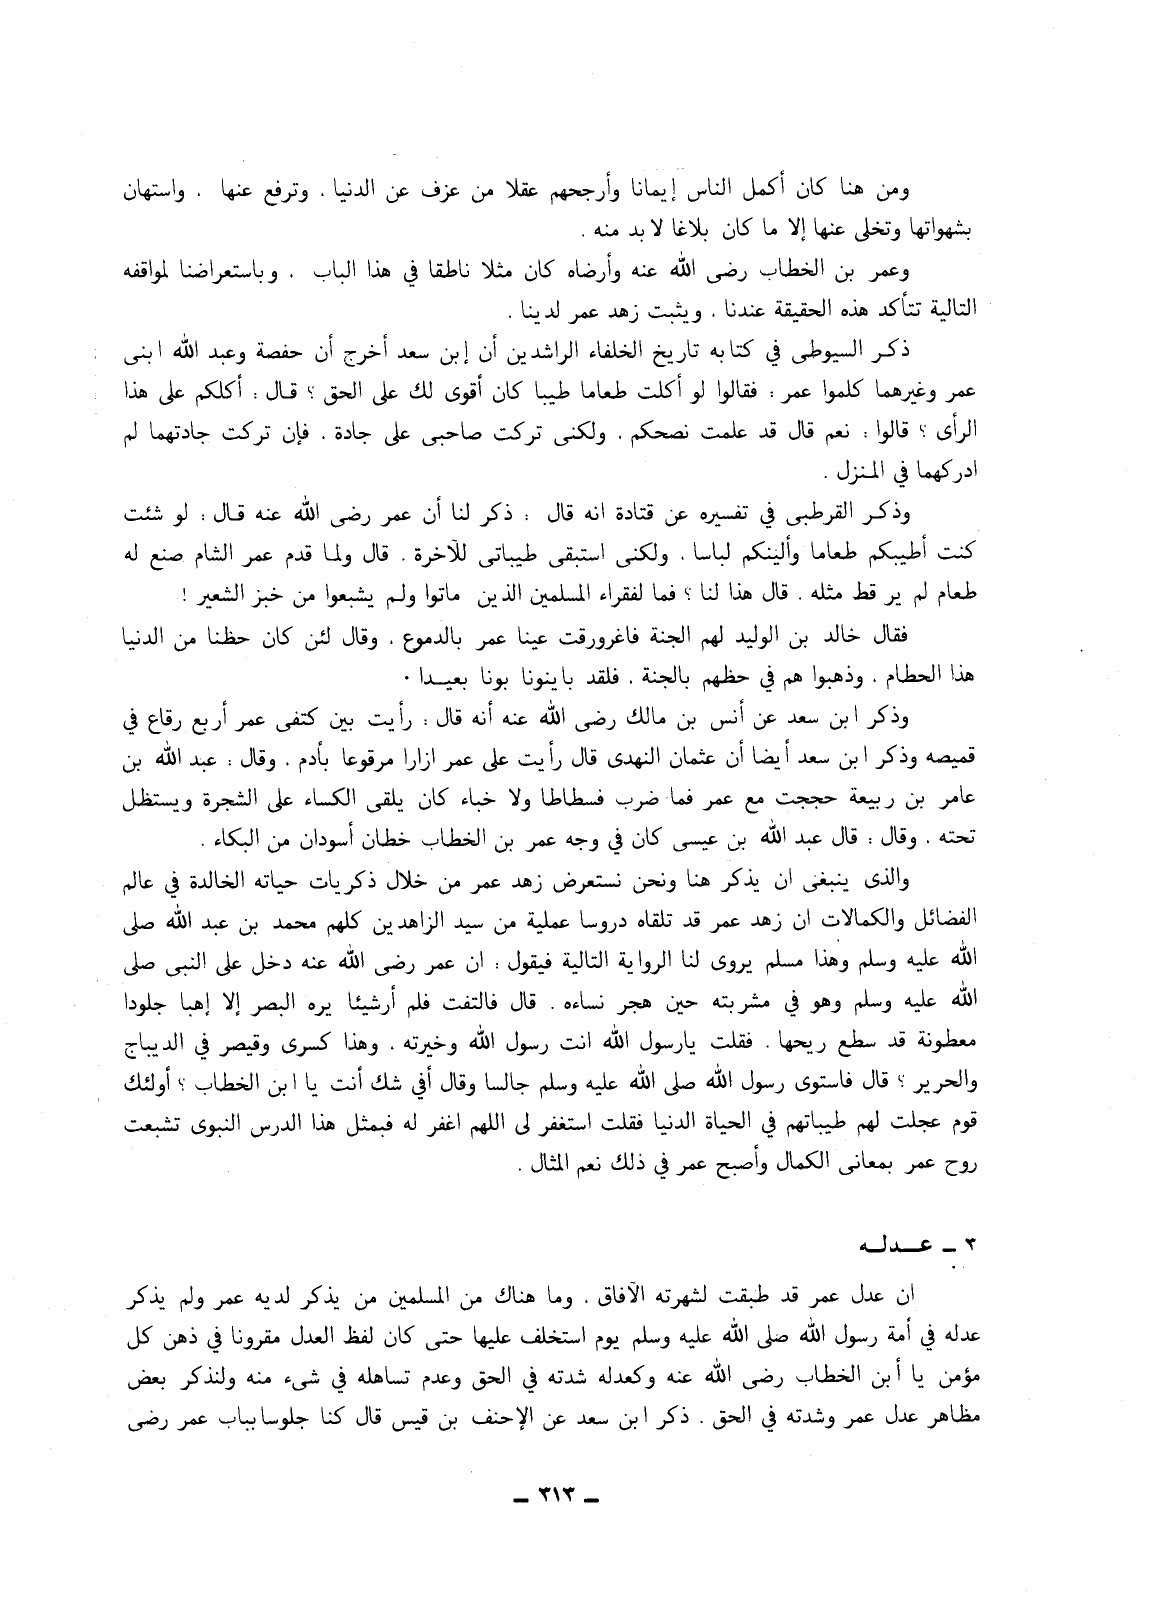 ومن هنا كان أكمل الناس إيمانا وأرجحهم عقلا من عزف عن الدنيا ، وترفع عنها ، واستهان
بشهواتها وتخلى عنها إلا ما كان بلاغا لا بد منه .
وعمر بن الخطاب رضى الله عنه وأرضاه كان مثلا ناطقا في هذا الباب ، وباستعراضنا لمواقفه
التالية تتأكد هذه الحقيقة عندنا ، ويثبت زهد عمر لدينا .
ذكر السيوطى في كتابه تاريخ الخلفاء الراشدين أن إبن سعد أخرج أن حفصة وعبد الله ابنى
عمر وغيرهما كلموا عمر : فقالوا لو أكلت طعاما طيبا كان أقوى لك على الحق ؟ قال : أكلكم على هذا
الرأى ؟ قالوا : نعم قال قد علمت نصحكم ، ولكنى تركت صاحبى على جادة ، فإن تركت جادتهما لم
ادركهما في المنزل .
وذكر القرطبى في تفسيره عن قتادة انه قال : ذكر لنا أن عمر رضى الله عنه قال : لو شئت
كنت أطيبكم طعاما وألينكم لباسا ، ولكنى استبقى طيباتى للآخرة . قال ولما قدم عمر الشام صنع له
طعام لم ير قط مثله . قال هذا لنا ؟ فما لفقراء المسلمين الذين ماتوا ولم يشبعوا من خبز الشعير !
فقال خالد بن الوليد لهم الجنة فاغرورقت عينا عمر بالدموع ، وقال لئن كان حظنا من الدنيا
هذا الحطام ، وذهبوا هم في حظهم بالجنة ، فلقد باينونا بونا بعيدا .
وذكر ابن سعد عن أنس بن مالك رضى الله عنه أنه قال : رأيت بين كتفى عمر أربع رقاع في
قميصه وذكر ابن سعد أيضا أن عثمان النهدى قال رأيت على عمر ازارا مرقوعا بأدم ، وقال : عبد الله بن
عامر بن ربيعة حججت مع عمر فما ضرب فسطاطا ولا خباء كان يلقى الكساء على الشجرة ويستظل
تحته ، وقال : قال عبد الله بن عيسى كان في وجه عمر بن الخطاب خطان أسودان من البكاء .
والذى ينبغى ان يذكر هنا ونحن نستعرض زهد عمر من خلال ذكريات حياته الخالدة في عالم
الفضائل والكمالات ان زهد عمر قد تلقاه دروسا عملية من سيد الزاهدين كلهم محمد بن عبد الله صلى
الله عليه وسلم وهذا مسلم يروى لنا الرواية التالية فيقول : ان عمر رضى الله عنه دخل على النبى صلى
الله عليه وسلم وهو في مشربته حين هجر نساءه . قال فالتفت فلم أرشيئا يره البصر إلا إهبا جلودا
معطونة قد سطع ريحها . فقلت يارسول الله انت رسول الله وخيرته ، وهذا كسرى وقيصر في الديباج
والحرير ؟ قال فاستوى رسول الله صلى الله عليه وسلم جالسا وقال أفي شك أنت يا ابن الخطاب ؟ أولئك
قوم عجلت لهم طيباتهم في الحياة الدنيا فقلت استغفر لى اللهم اغفر له فبمثل هذا الدرس النبوى تشبعت
روح عمر بمعانى الكمال وأصبح عمر في ذلك نعم المثال .
٣ ـ عـدلـه
ان عدل عمر قد طبقت لشهرته الآفاق ، وما هناك من المسلمين من يذكر لديه عمر ولم يذكر
عدله في أمة رسول الله صلى الله عليه وسلم يوم استخلف عليها حتى كان لفظ العدل مقرونا في ذهن كل
مؤمن يا أبن الخطاب رضى الله عنه وكعدله شدته في الحق وعدم تساهله في شىء منه ولنذكر بعض
مظاهر عدل عمر وشدته في الحق . ذكر ابن سعد عن الإحنف بن قيس قال كنا جلوسا بباب عمر رضى
ـ ٣١٣ ـ